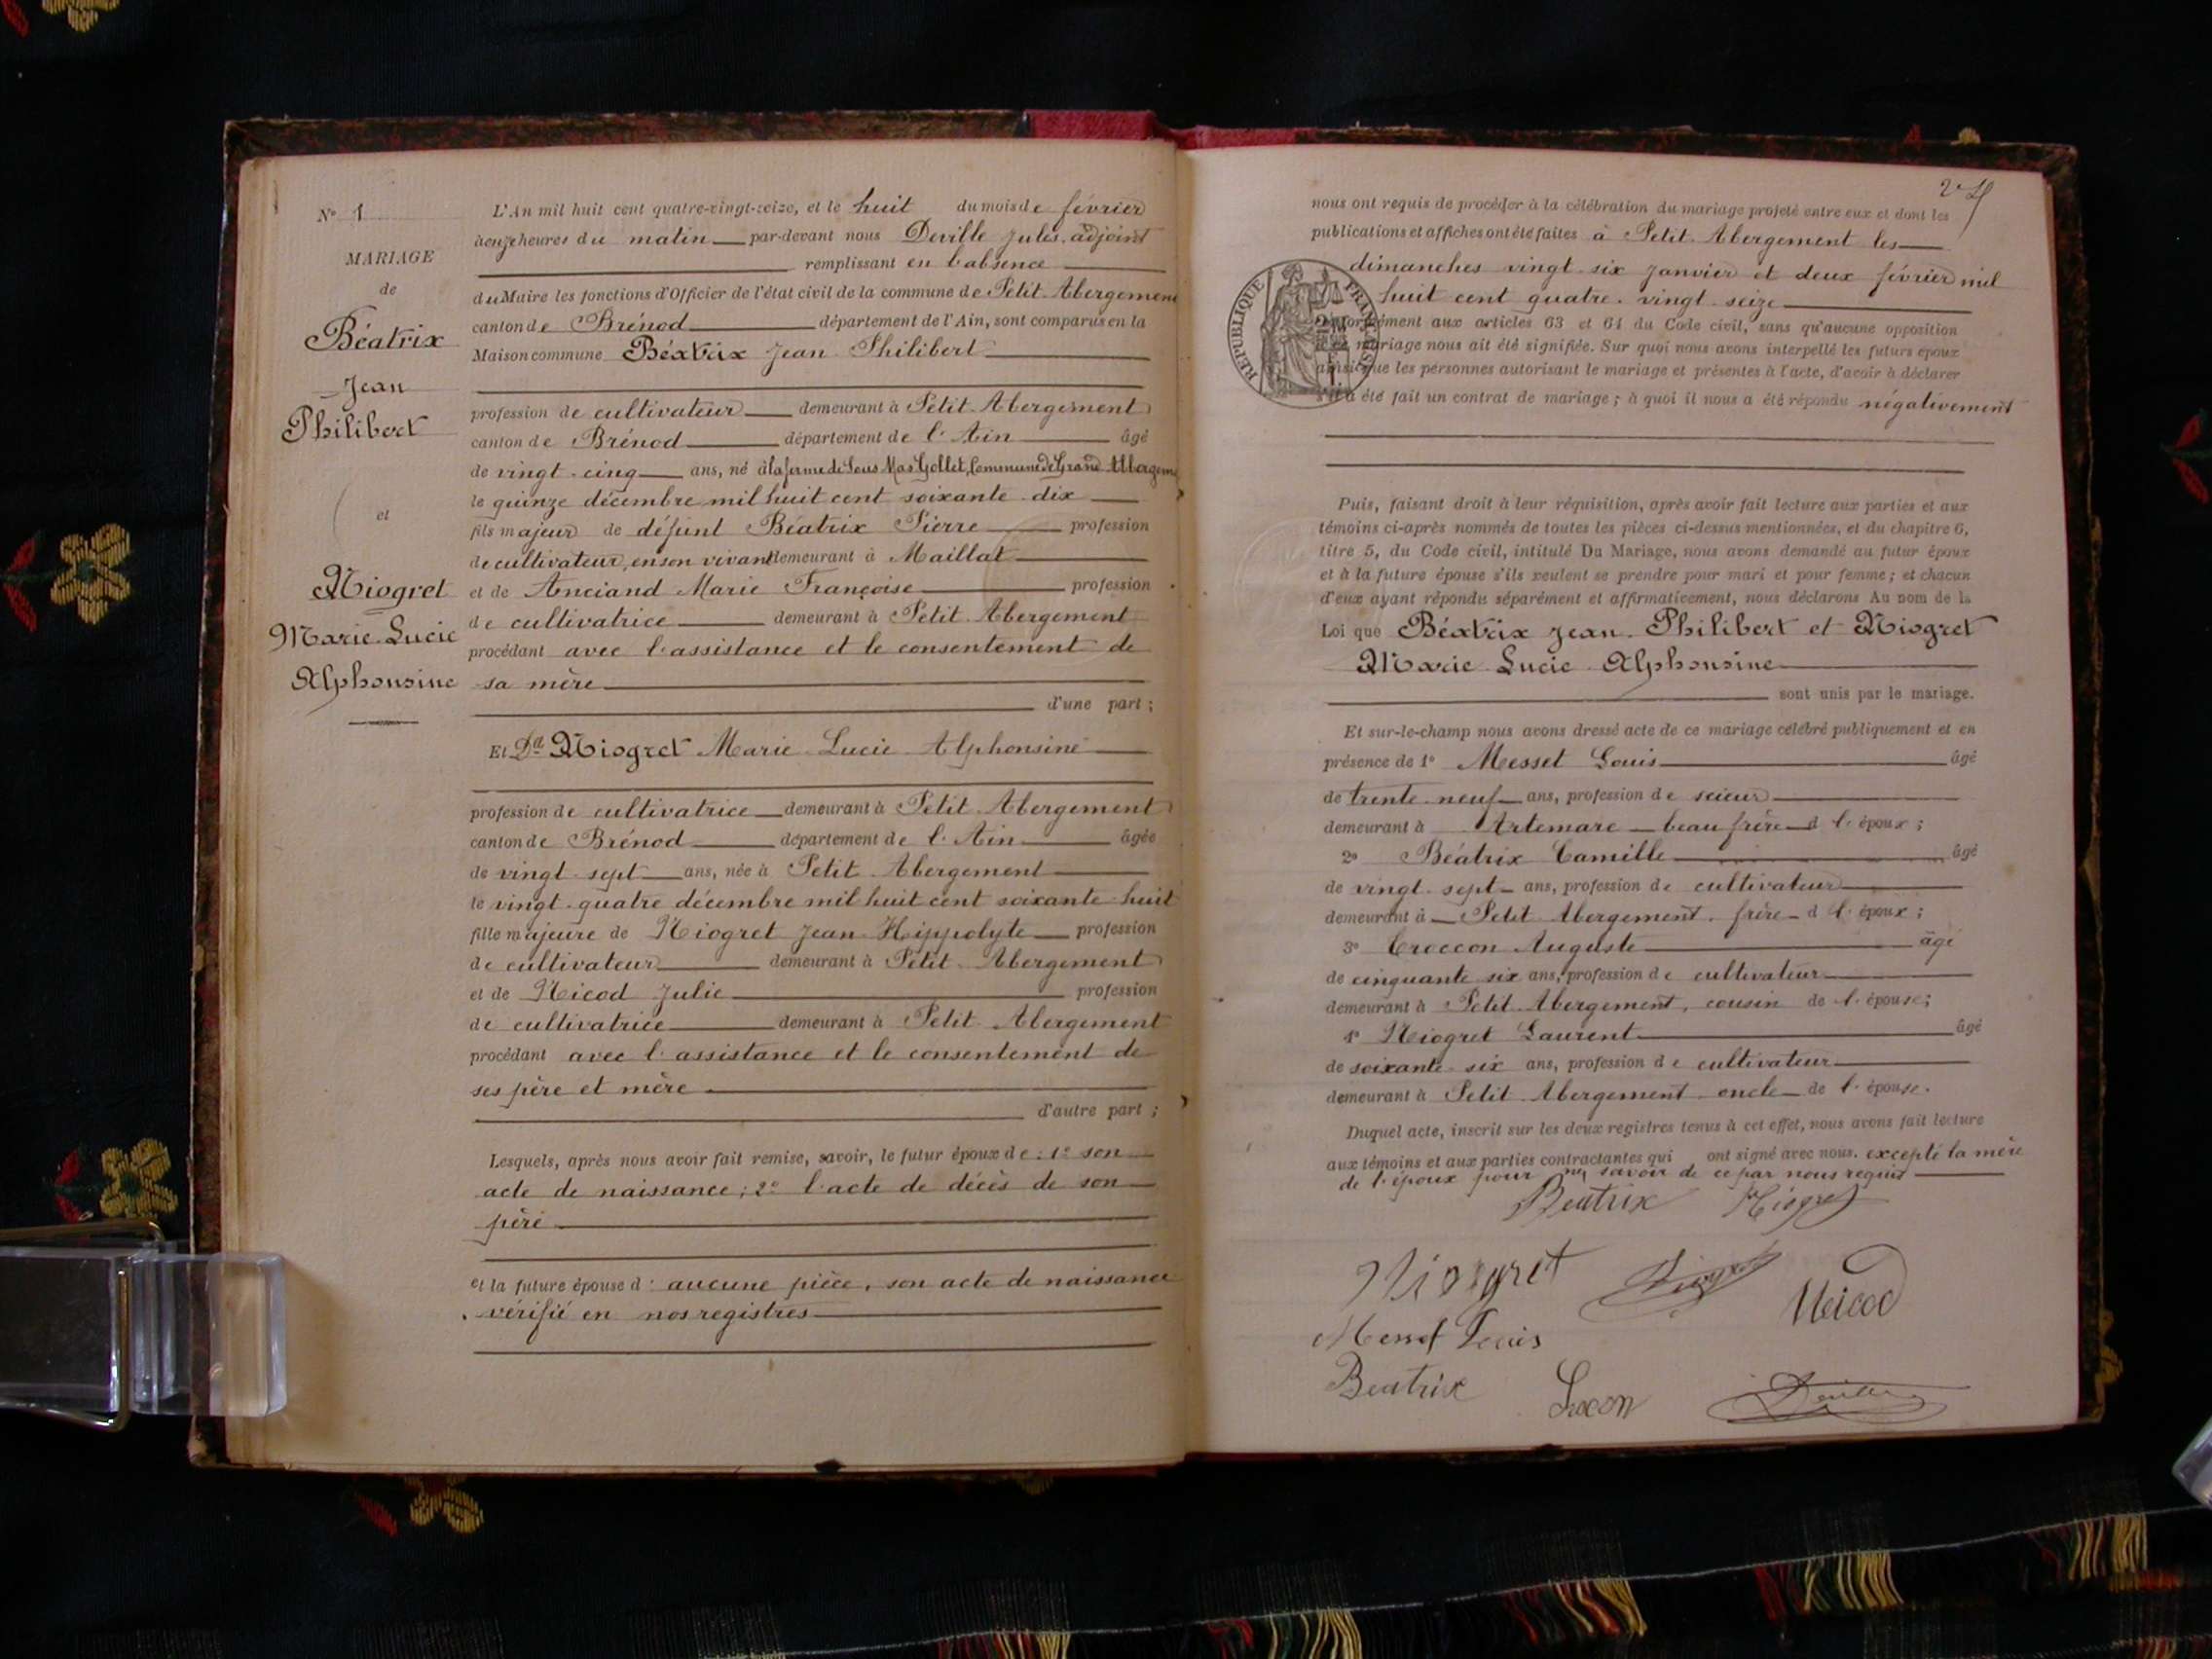 N° 1
MARIAGE
de
Béatrix
Jean
Philibert
et
Niogret
Marie Lucie
Alphonsine
L'An mil huit cent quatre-vingt-seize, et le huit du mois de février
à onze heures du matin par-devant nous Deville Jules, adjoint
remplissant en l'absence
du Maire les fonctions d'Officier de l'état civil de la commune de Petit-Abergement
canton de Brénod département de l'Ain, sont comparus en la
Maison commune Béatrix Jean Philibert
profession de cultivateur demeurant à Petit-Abergement
canton de Brénod département de l'Ain âgé
de vingt-cinq ans, né à la ferme de Sous Mas Gollet, Commune de Grand Abergeme
le quinze décembre mil huit cent soixante-dix
fils majeur de défunt Béatrix Pierre profession
de cultivateur, en son vivant demeurant à Maillat
et de Anciand Marie Françoise profession
de cultivatrice demeurant à Petit-Abergement
procédant avec l'assistance et le consentement de
sa mère
d'une part ;
Et Dlle Niogret Marie Lucie Alphonsine
profession de cultivatrice demeurant à Petit-Abergement
canton de Brénod département de l'Ain âgée
de vingt-sept ans, née à Petit-Abergement
le vingt-quatre décembre mil huit cent soixante-huit
fille majeure de Niogret Jean-Hippolyte profession
de cultivateur demeurant à Petit-Abergement
et de Nicod Julie profession
de cultivatrice demeurant à Petit-Abergement
procédant avec l'assistance et le consentement de
ses père et mère
d'autre part ;
Lesquels, après nous avoir fait remise, savoir, le futur époux de : 1° son
acte de naissance ; 2° l'acte de décès de son
père
et la future épouse d' aucune pièce, son acte de naissance
vérifié en nos registres
nous ont requis de procéder à la célébration du mariage projeté entre eux et dont les
publications et affiches ont été faites à Petit-Abergement les
dimanches vingt-six janvier et deux février mil
huit cent quatre-vingt-seize
RÉPUBLIQUE FRANÇAISE
conformément aux articles 63 et 64 du Code civil, sans qu'aucune opposition
à ce mariage nous ait été signifiée. Sur quoi nous avons interpellé les futurs époux
ainsi que les personnes autorisant le mariage et présentes à l'acte, d'avoir à déclarer
s'il a été fait un contrat de mariage ; à quoi il nous a été répondu négativement
Puis, faisant droit à leur réquisition, après avoir fait lecture aux parties et aux
témoins ci-après nommés de toutes les pièces ci-dessus mentionnées, et du chapitre 6,
titre 5, du Code civil, intitulé Du Mariage, nous avons demandé au futur époux
et à la future épouse s'ils veulent se prendre pour mari et pour femme ; et chacun
d'eux ayant répondu séparément et affirmativement, nous déclarons Au nom de la
Loi que Béatrix Jean-Philibert et Niogret
Marie Lucie Alphonsine
sont unis par le mariage.
Et sur-le-champ nous avons dressé acte de ce mariage célébré publiquement et en
présence de 1° Messet Louis âgé
de trente-neuf ans, profession de scieur
demeurant à Artemare beau-frère d l'époux ;
2° Béatrix Camille âgé
de vingt-sept ans, profession de cultivateur
demeurant à Petit-Abergement, frère d l'époux ;
3° Croccon Auguste âgé
de cinquante-six ans, profession de cultivateur
demeurant à Petit-Abergement, cousin de l'épouse ;
4° Niogret Laurent âgé
de soixante-six ans, profession de cultivateur
demeurant à Petit-Abergement oncle de l'épouse.
Duquel acte, inscrit sur les deux registres tenus à cet effet, nous avons fait lecture
aux témoins et aux parties contractantes qui ont signé avec nous. excepté la mère
de l'époux pour ne savoir de ce par nous requis
Beatrix Niogret
Niogret
Nicod
Messet Louis
Beatrix